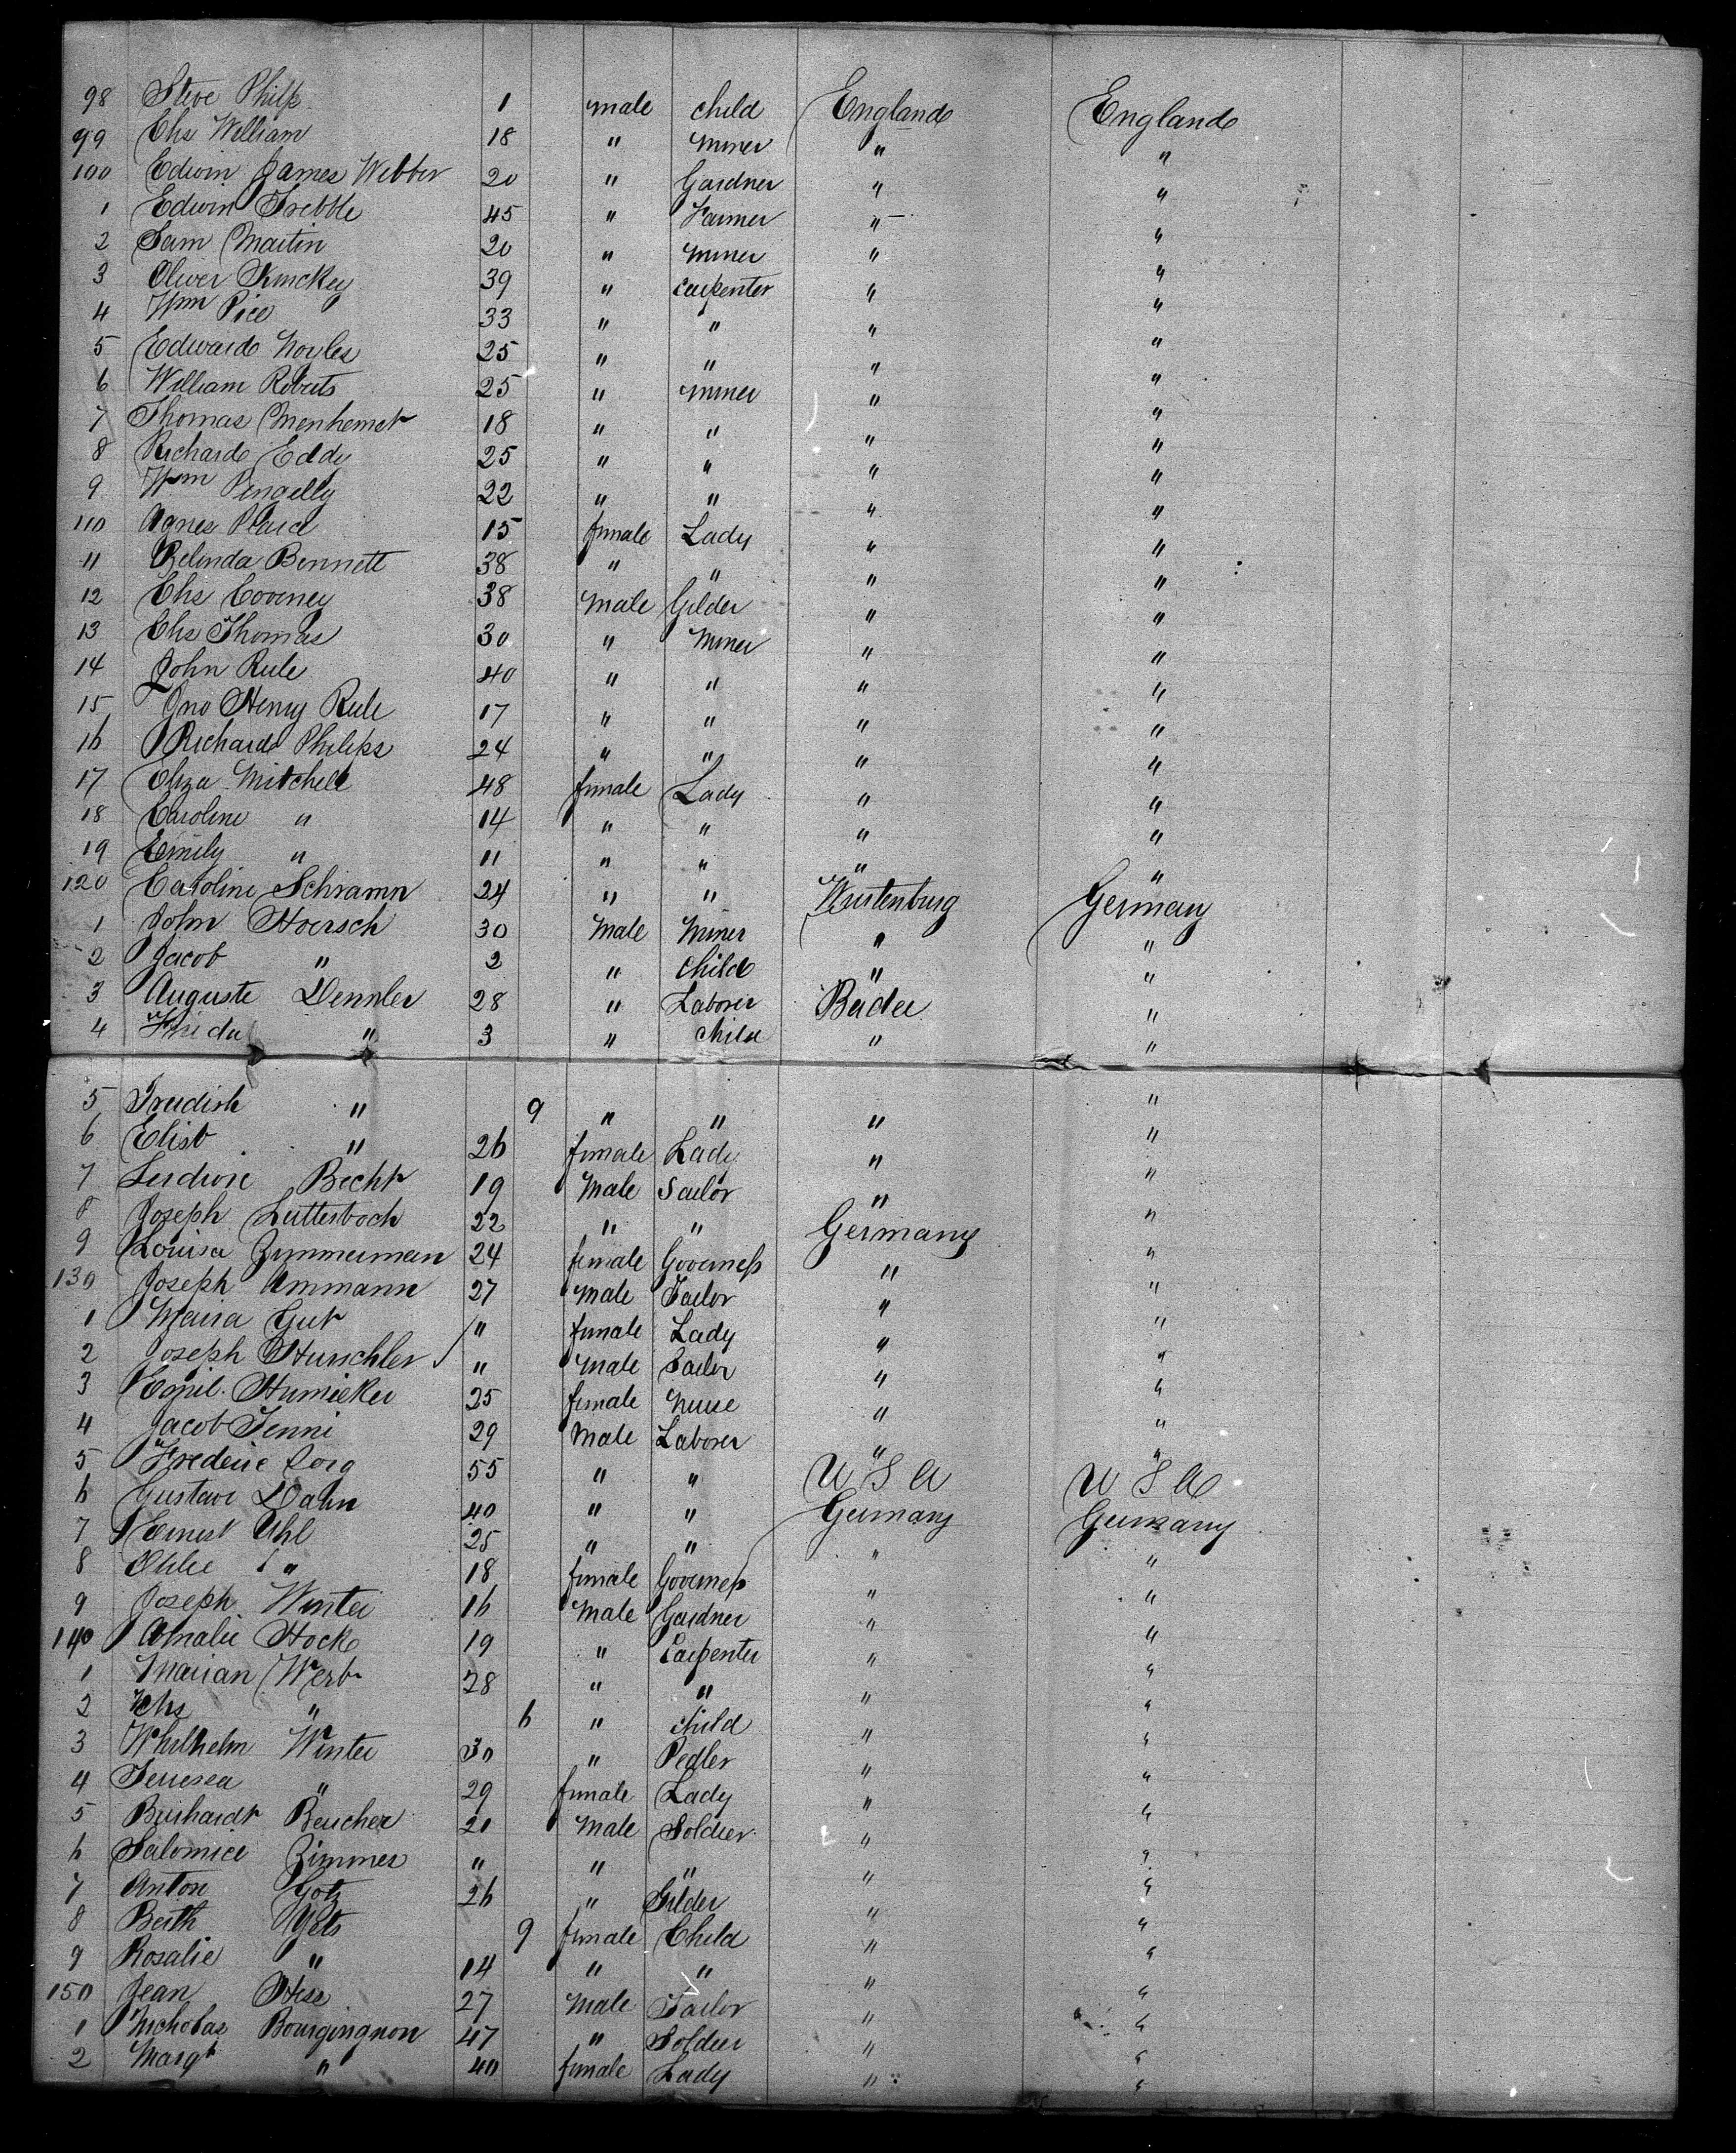 98 Steve Philp 1 male child England England
99 Chs William 18 " miner " "
100 Edwin James Webber 20 " Gardner " "
1 Edwin Trebble 45 " Farmer " "
2 Sam Martin 20 " miner " "
3 Oliver 39 " carpenter " "
4 Wm Pice 33 " " " "
5 Edward Noyles 25 " " " "
6 William Roberts 25 " miner " "
7 Thomas 18 " " " "
8 Richard Eddy 25 " " " "
9 Wm Pengelly 22 " " " "
110 Agnes 15 female Lady " "
11 Belinda Bennett 38 " " " "
12 Chs 38 Male Gilder " "
13 Chs Thomas 30 " Miner " "
14 John Rule 40 " " " "
15 Jno Henry Rule 17 " " " "
16 Richard Philips 24 " " " "
17 Eliza Mitchell 48 female Lady " "
18 Caroline " 14 " " " "
19 Emily " 11 " " " "
120 Caroline Schramn 24 " " Wurtenburg Germany
1 John Hoersch 30 Male Miner " "
2 Jacob " 2 " child " "
3 Auguste Dennler 28 " Laborer Baden "
4 " 3 " child " "
5 " 9 " " " "
6 Elisb " 26 female Lady " "
7 Becht 19 Male Sailor " "
8 Joseph Lutterboch 22 " " Germany "
9 Louisa Zimmerman 24 female Governess " "
130 Joseph Ammann 27 Male Tailor " "
1 Maria Gut " female Lady " "
2 Joseph Hurschler " Male Sailor " "
3 25 female nurse " "
4 Jacob Jenni 29 Male Laborer " "
5 Frederic Sorg 55 " " U S A U S A
6 Gustave Dahn 40 " " Germany Germany
7 Ernest Uhl 25 " " " "
8 " 18 female Governess " "
9 Joseph Winter 16 Male Gardner " "
140 Amalie Hock 19 " Carpenter " "
1 Marian Werb 28 " " " "
2 Chs " 6 " child " "
3 Whilhelm Winter 30 " Pedler " "
4 " 29 female Lady " "
5 Burhardt Beucher 20 Male Soldier " "
6 Salomice Zimmes " " " " "
7 Anton Gotz 26 " Gilder " "
8 Berth 9 female Child " "
9 Rosalie " 14 " " " "
150 Jean Hess 27 Male Tailor " "
1 Nicholas Bourgingnon 47 " Soldier " "
2 Margt " 40 female Lady " "